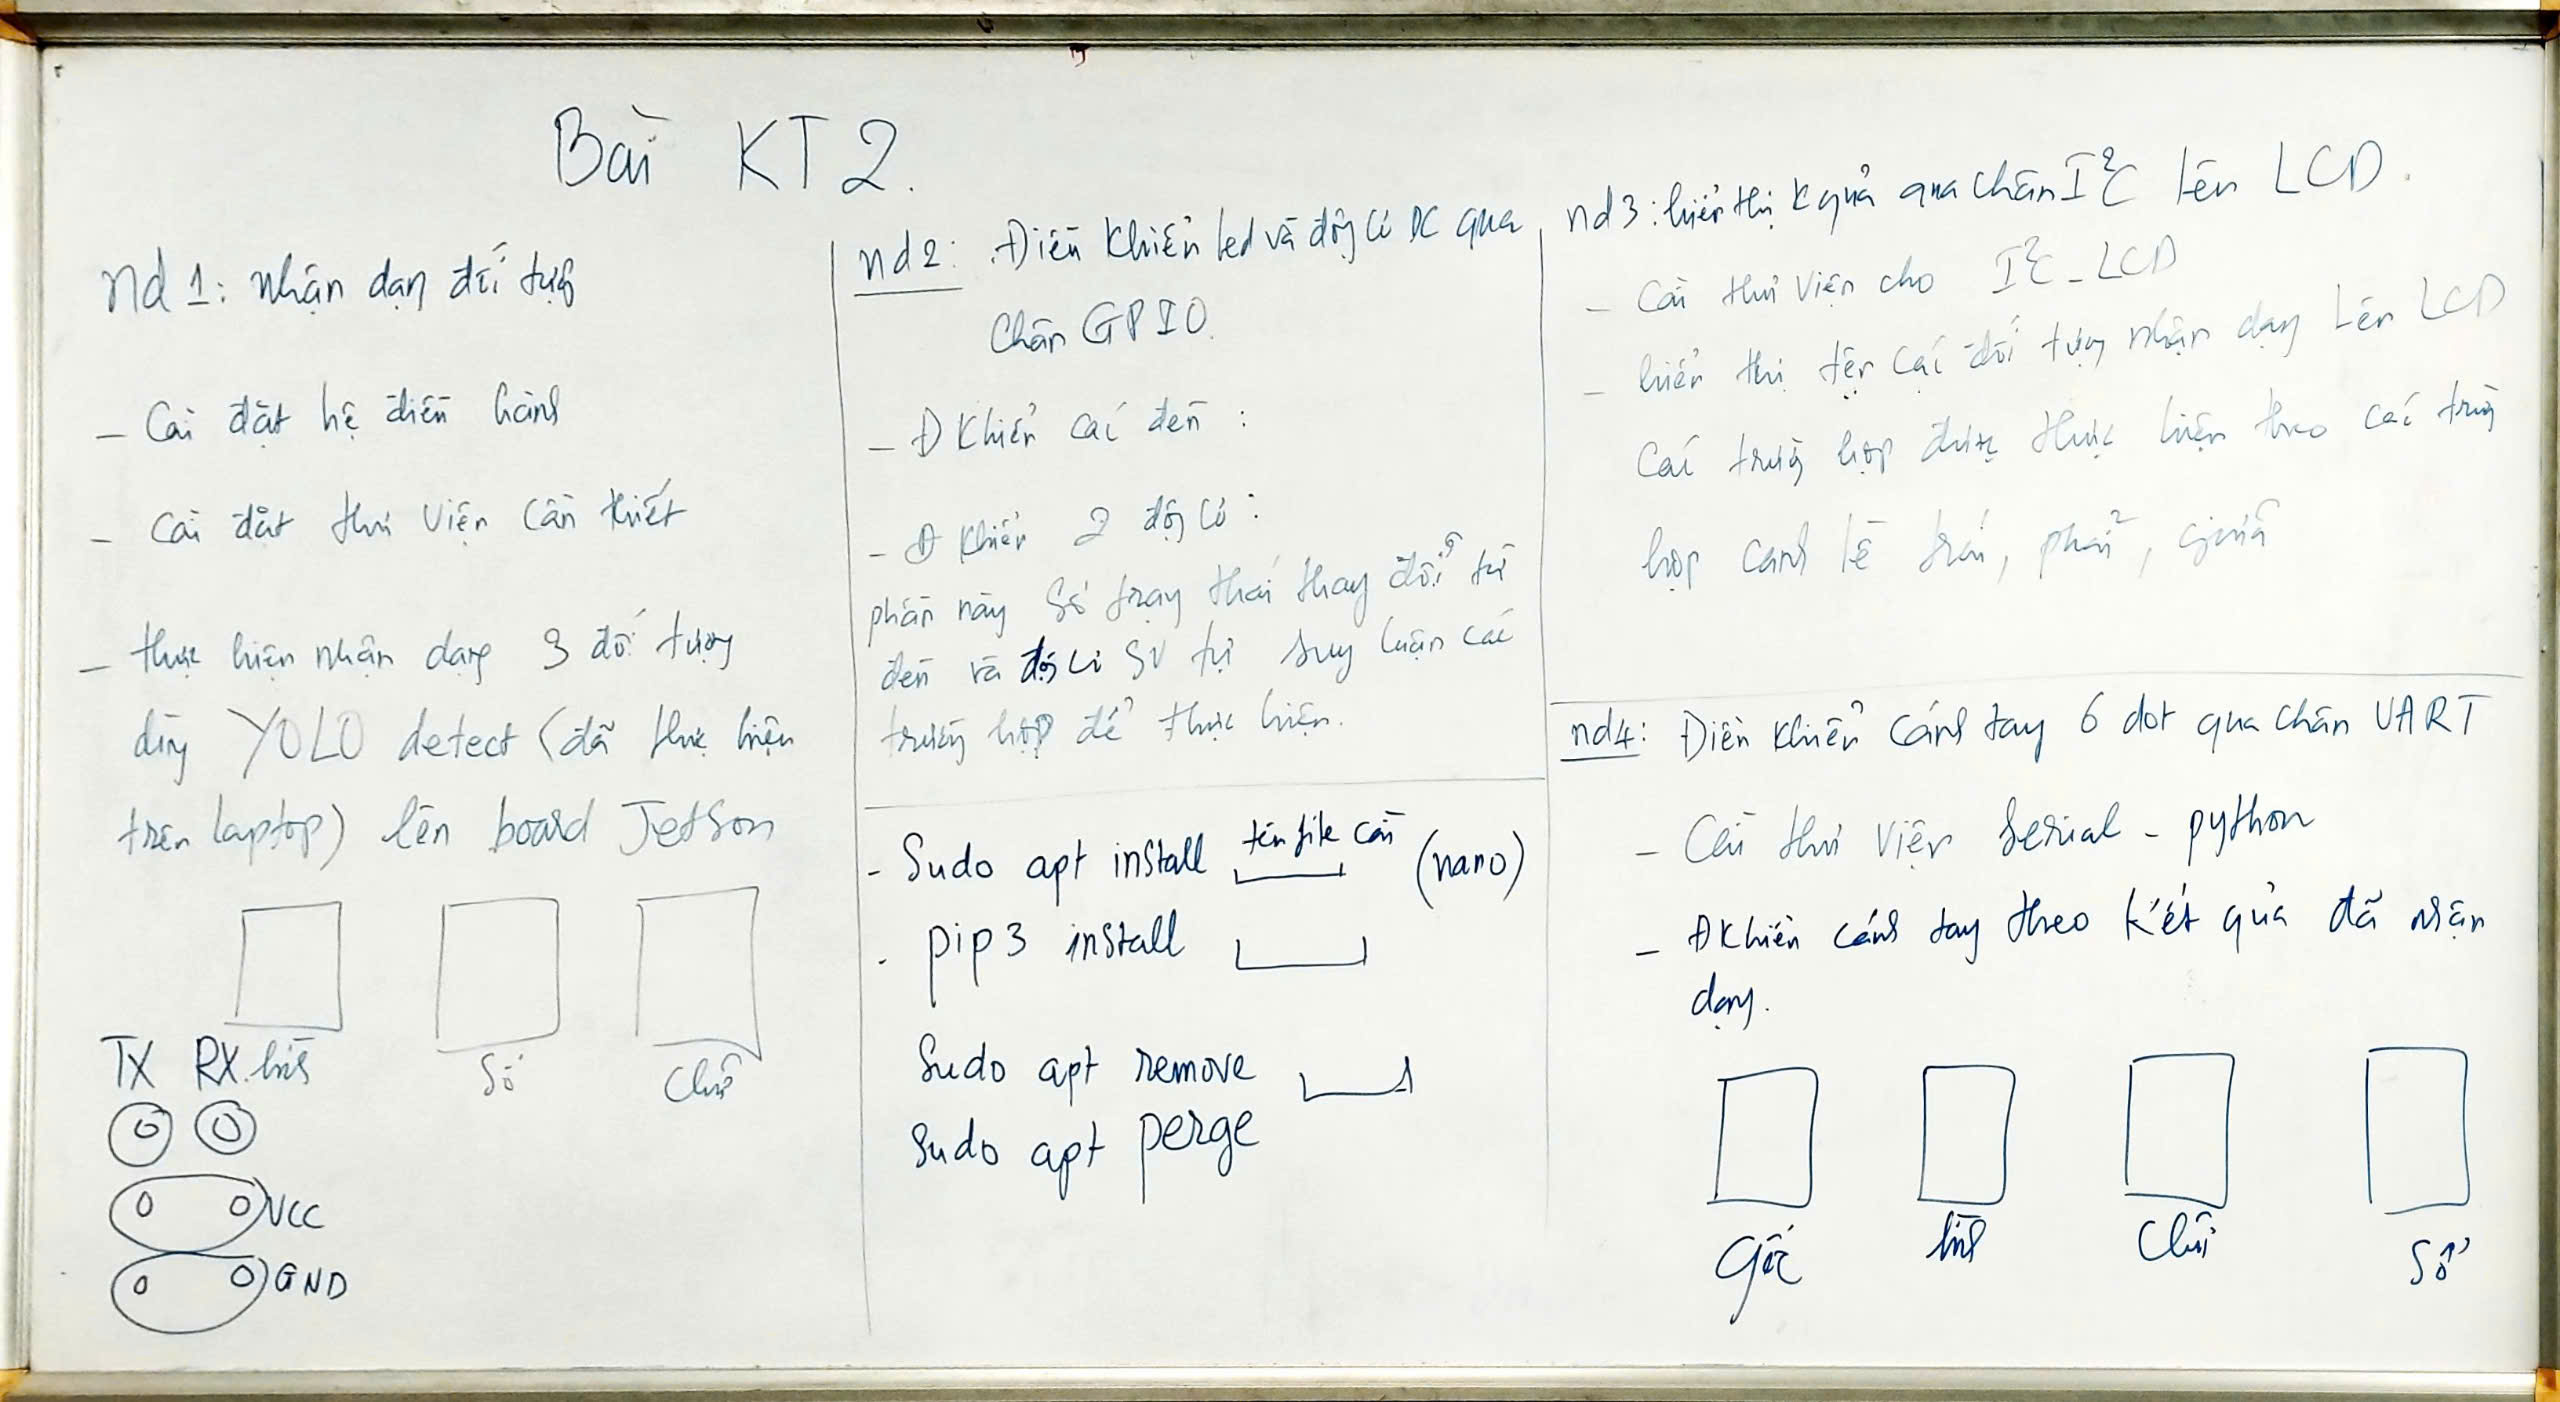 Bài KT 2.
nd 1: Nhận dạng đối tượng
- Cài đặt hệ điều hành
- Cài đặt thư viện cần thiết
- thực hiện nhận dạng 3 đối tượng
dùng YOLO detect (đã thực hiện
trên laptop) lên board Jetson
hình
Số
Chữ
TX RX
VCC
GND
nd2: Điều khiển led và động cơ DC qua
Chân GPIO.
- Đ Khiển các đèn :
- Đ Khiển 2 động cơ :
phần này Số trạng thái thay đổi từ
đèn và động cơ SV tự suy luận các
trường hợp để thực hiện.
- Sudo apt install tên file cần (nano)
- pip3 install
Sudo apt remove
Sudo apt perge
nd3: hiển thị kquả qua chân I²C lên LCD.
- Cài thư viện cho I²C-LCD
- hiển thị tên các đối tượng nhận dạng lên LCD
các trường hợp được thực hiện theo các trường
hợp canh lề trái, phải, giữa
nd4: Điều khiển Cánh tay 6 dot qua chân UART
- Cài thư viện Serial - python
- ĐKhiển cánh tay theo kết quả đã nhận
dạng.
Gốc
hình
Chữ
Số